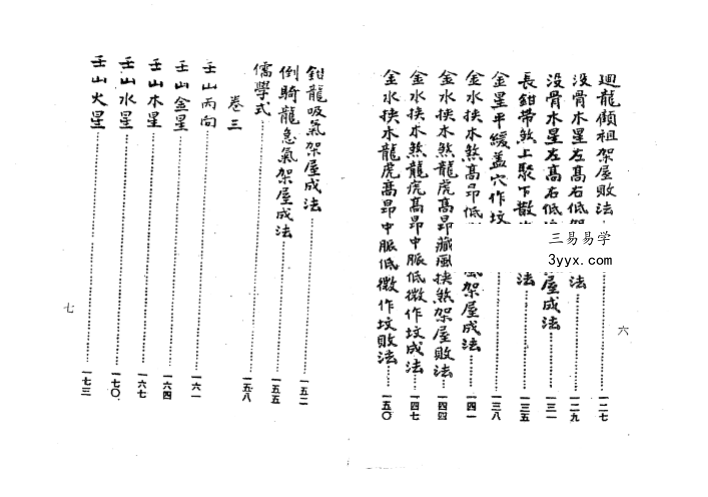 廻龍顧祖架屋敗法……一二七
没骨木星左高右低架 法……一二九
没骨木星左高右低 屋成法……一三一
長鉗帶煞上聚下散 法……一三五
金星平緩蓋穴作坟……一三八
金水挾木煞高昻低 風架屋成法……一四一
金水挾木煞龍虎高昻藏風挾煞架屋敗法……一四四
金水挾木煞龍虎高昻中脈低微作坟成法……一四七
金水挾木龍虎高昻中脈低微作坟敗法……一五〇
六
三易易学
3yyx.com
鉗龍吸氣架屋成法……一五二
倒騎龍急氣架屋成法……一五五
儒學式……一五八
卷三
壬山丙向……一六一
壬山金星……一六四
壬山木星……一六七
壬山水星……一七〇
壬山火星……一七三
七